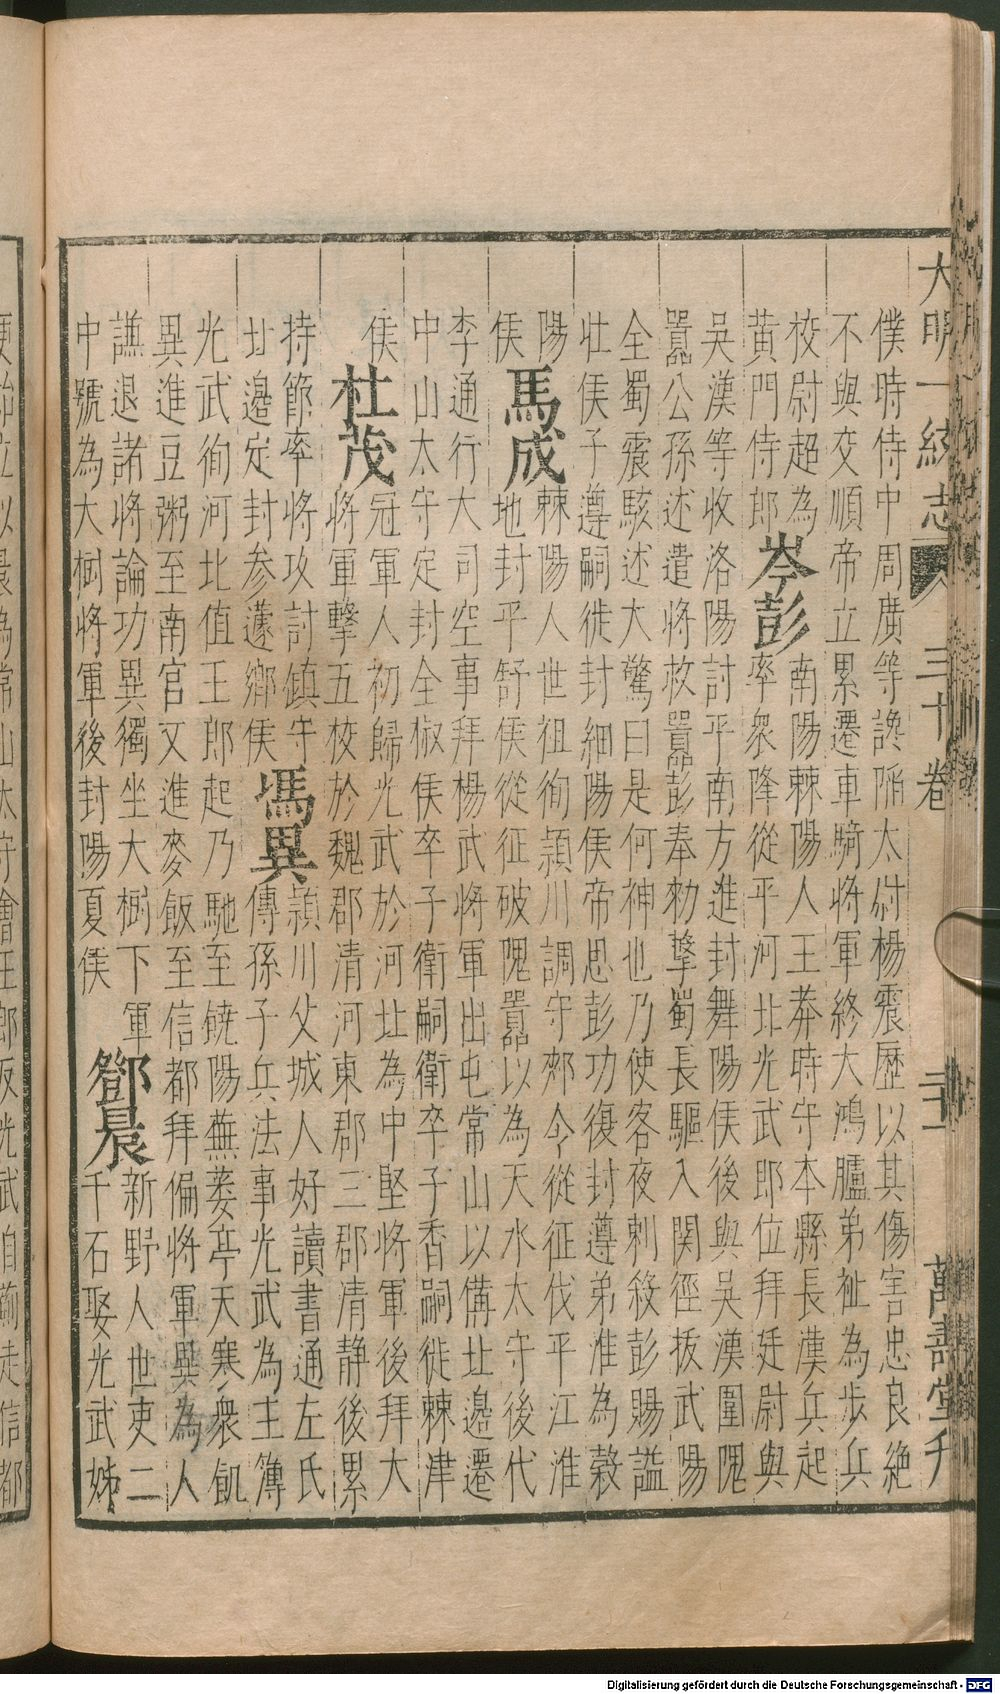 大明一統志 三十卷 二十一 萬壽堂刊
僕時侍中周廣等讒陷太尉楊震歷以其傷害忠良絶
不與交順帝立累遷車騎將軍終大鴻臚弟祉為步兵
校尉超為
黃門侍郎
岑彭
南陽棘陽人王莽時守本縣長漢兵起
率衆降從平河北光武即位拜廷尉與
吳漢等收洛陽討平南方進封舞陽侯後與吳漢圍隗
囂公孫述遣將救囂彭奉勑擊蜀長驅入関徑拔武陽
全蜀震駭述大驚曰是何神也乃使客夜刺殺彭賜謚
壮侯子遵嗣徙封細陽侯帝思彭功復封遵弟淮為穀
陽
侯
馬成
棘陽人世祖徇潁川調守郟令從征伐平江淮
地封平舒侯從征破隗囂以為天水太守後代
李通行大司空事拜楊武將軍出屯常山以備北邊遷
中山太守定封全椒侯卒子衛嗣衛卒子香嗣徙棘津
侯
杜茂
冠軍人初歸光武於河北為中堅將軍後拜大
將軍擊五校於魏郡清河東郡三郡清静後累
持節率將攻討鎮守
北邊定封参蘧鄉侯
馮異
潁川父城人好讀書通左氏
傳孫子兵法事光武為主簿
光武徇河北值王郎起乃馳至饒陽蕪蔞亭天寒衆飢
異進豆粥至南宫又進麥飯至信都拜偏將軍異為人
謙退諸將論功異獨坐大樹下軍
中號為大樹將軍後封陽夏侯
鄧晨
新野人世吏二
千石娶光武姊
更始立以晨為常山太守會王郎反光武自薊走信都
Digitalisierung gefördert durch die Deutsche Forschungsgemeinschaft - DFG